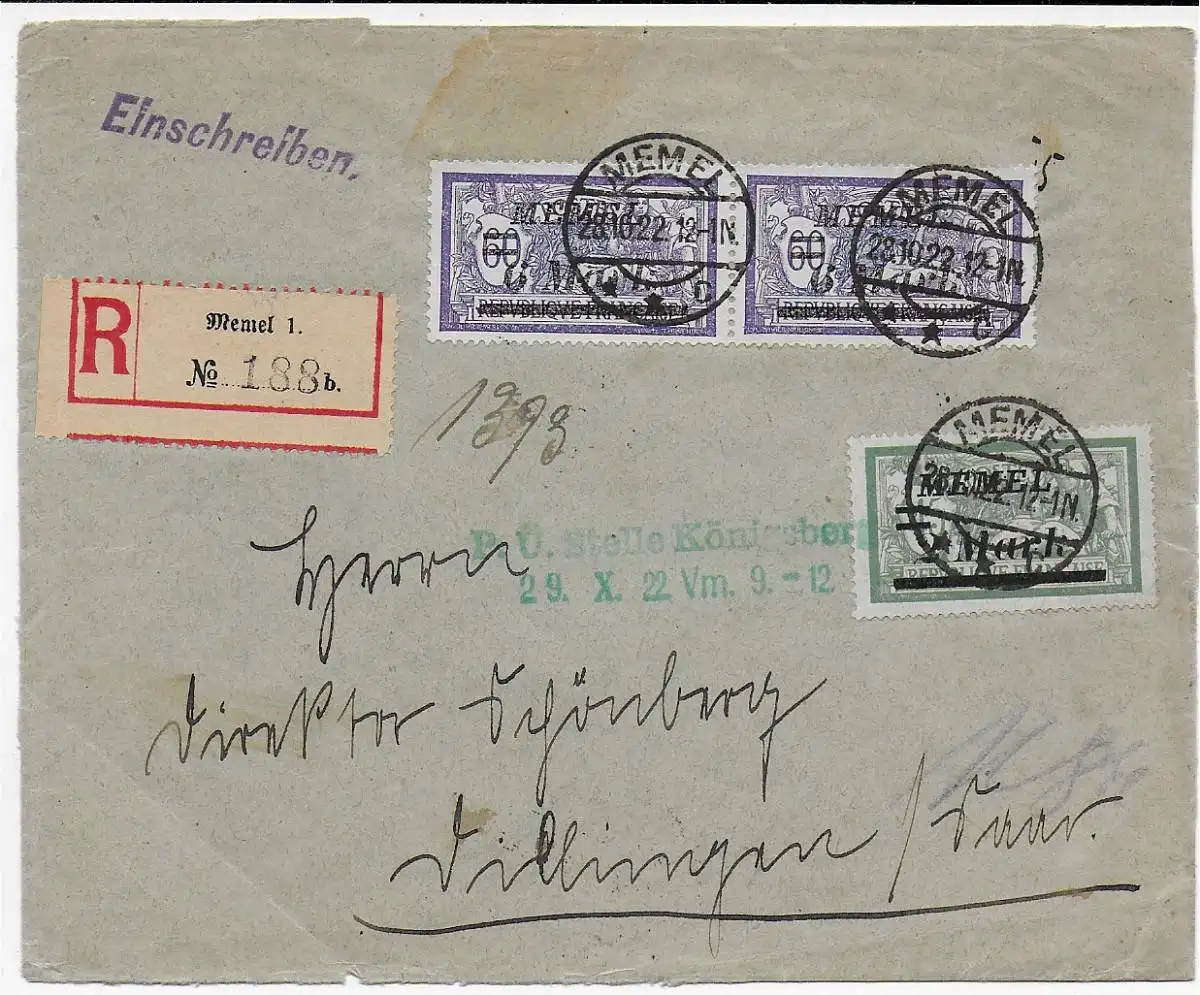 Einschreiben.
MEMEL
28.10.22.12-1N.
C
MEMEL
60
6 Mark
REPUBLIQUE FRANCAISE
MEMEL
28.10.22.12-1N.
C
MEMEL
60
6 Mark
REPUBLIQUE FRANCAISE
R
Memel 1.
No 188 b.
1393
MEMEL
28.10.22.12-1N.
MEMEL
Mark
REPUBLIQUE FRANCAISE
P. Ü. Stelle Königsberg
29. X. 22 Vm. 9.-12
Herrn
Direktor Schönberg
Dillingen / Saar.